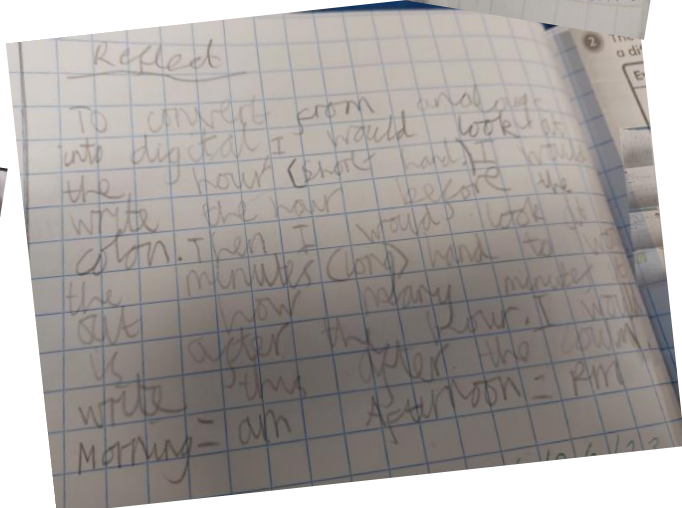 Reflect
To convert from analogue
into digital I would look at
the hour (short hand) I would
write the hour before the
colon. Then I would look at
the minutes (long) hand to wo
out how many minutes
is after the hour. I would
write this after the
Morning = am Afternoon = Pm
2
a di